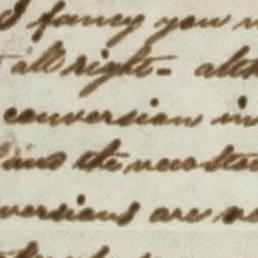 I fancy you
all right - alth
conversion in
and the, new sta
versions are